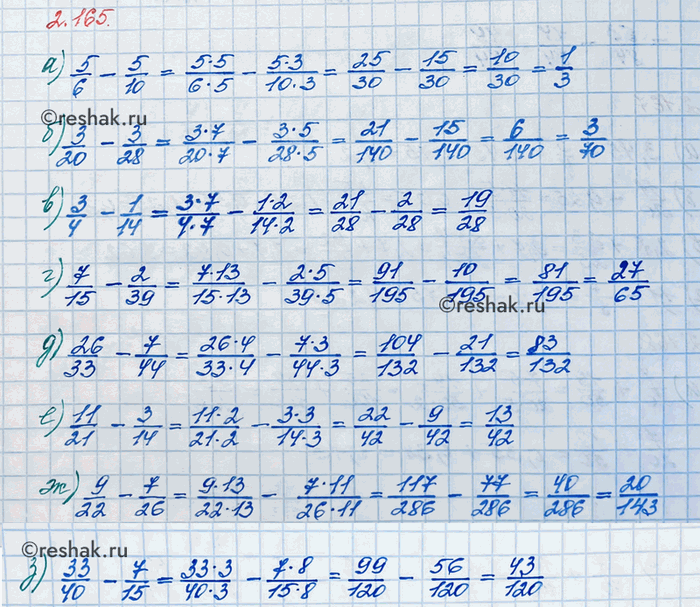 2.165.
а) 5/6 − 5/10 = 5·5/6·5 − 5·3/10·3 = 25/30 − 15/30 = 10/30 = 1/3
©reshak.ru
б) 3/20 − 3/28 = 3·7/20·7 − 3·5/28·5 = 21/140 − 15/140 = 6/140 = 3/70
в) 3/4 − 1/14 = 3·7/4·7 − 1·2/14·2 = 21/28 − 2/28 = 19/28
г) 7/15 − 2/39 = 7·13/15·13 − 2·5/39·5 = 91/195 − 10/195 = 81/195 = 27/65
©reshak.ru
д) 26/33 − 7/44 = 26·4/33·4 − 7·3/44·3 = 104/132 − 21/132 = 83/132
е) 11/21 − 3/14 = 11·2/21·2 − 3·3/14·3 = 22/42 − 9/42 = 13/42
ж) 9/22 − 7/26 = 9·13/22·13 − 7·11/26·11 = 117/286 − 77/286 = 40/286 = 20/143
©reshak.ru
з) 33/40 − 7/15 = 33·3/40·3 − 7·8/15·8 = 99/120 − 56/120 = 43/120